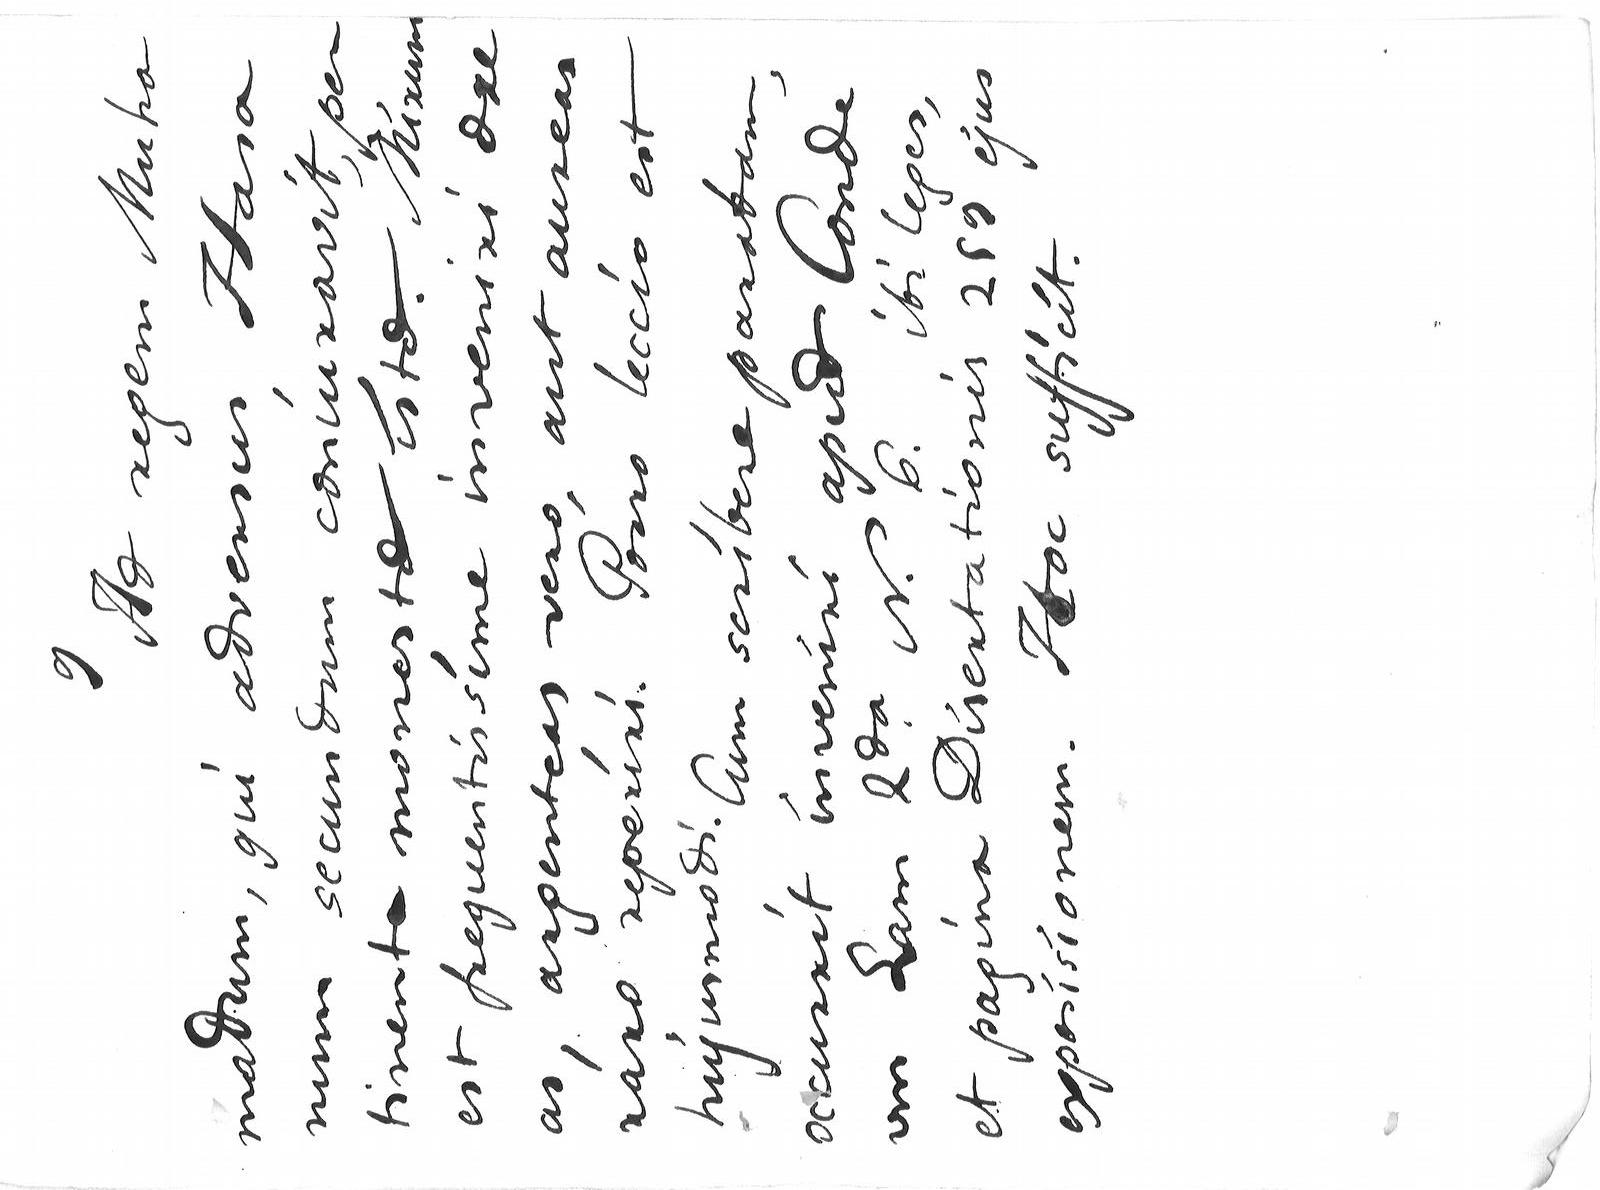 9
Ad regem Muha
madum, qui adversús Hasa
num secundum coniuravit, per
tinent monesta ista. Mirum
est frequentissime inveniri æreas
as, argenteas vero, aut aureas
raro reperiri. Pono lectio est
hujusmodi. Cum scribere parabam,
occurrit inveniri apud Conde
um Lam 2da N. 6. ibi leges,
et pagina Disertationis 259 ejus
exposisionem. Hoc sufficit.